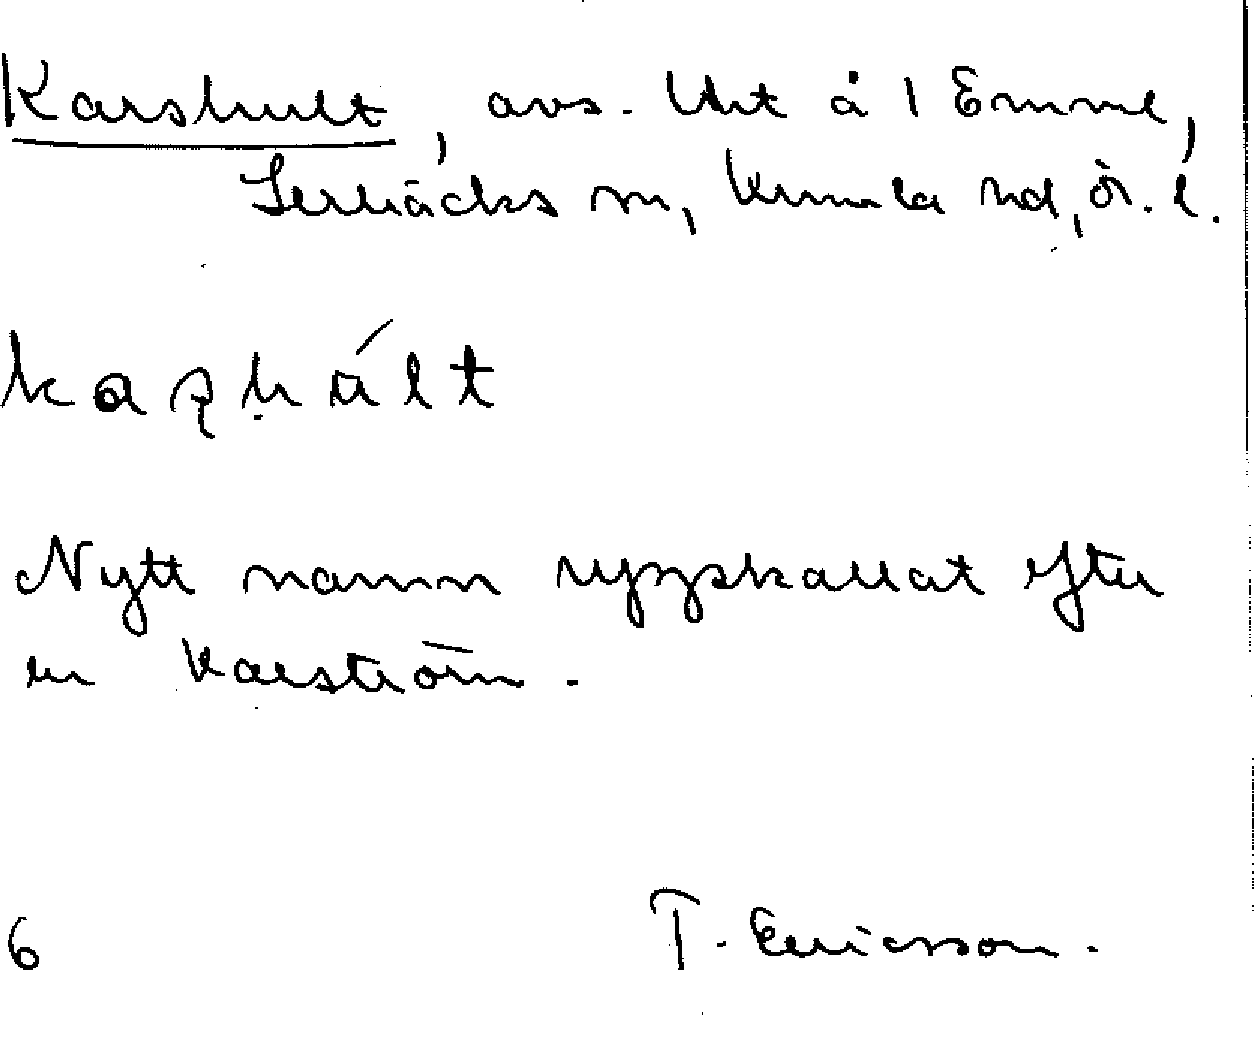 Karshult, avs. Uht å 1 Emme,
Lerbäcks sn, Kumla hd, ör. l.
kaʂhúlt
Nytt namn uppkallat efter
en Karström.
6 T. Ericsson.